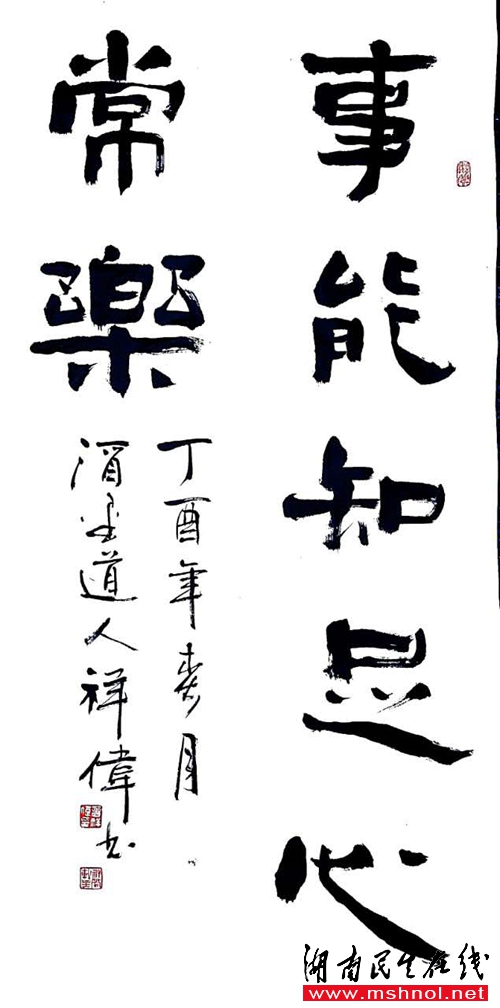 事能知足心
常樂
丁酉年月
道人祥偉书
湖南民生在线
www.mshnol.net